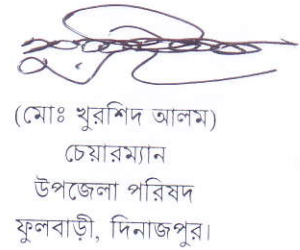 (মোঃ খুরশিদ আলম)
চেয়ারম্যান
উপজেলা পরিষদ
ফুলবাড়ী, দিনাজপুর।